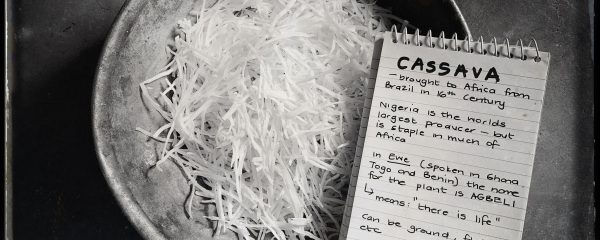 CASSAVA
- brought to Africa from
Brazil in 16th Century
Nigeria is the worlds
largest producer - but
is staple in much of
Africa
in ewe (spoken in Ghana
Togo and Benin) the name
for the plant is AGBELI
↳ means: "there is life"
Can be ground,
etc